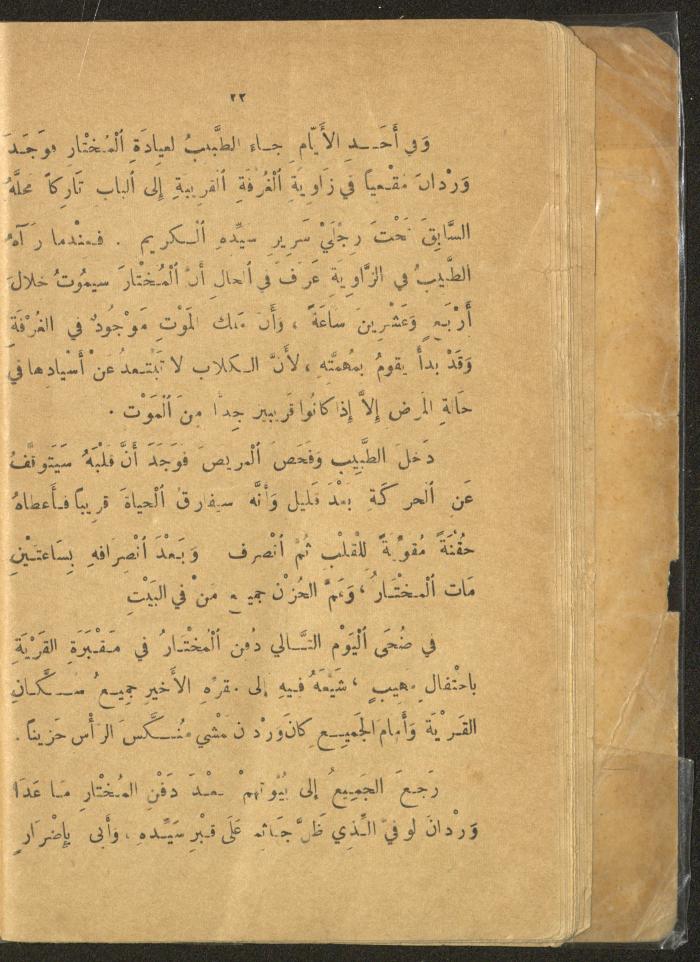 ٢٢
وَفي أَحَـدِ الأَيَّامِ جـاء الطَّبيبُ لعِيادَةِ ٱلْمُخْتارِ فوَجَدَ
وَرْدانَ مُقْعياً في زَاوِيَةِ ٱلْغُرْفَةِ ٱلقريبةِ إِلى ٱلباب تَاركاً محلَّهُ
السَّابِقَ تَحْتَ رِجْلَيْ سَريرِ سَيِّدهِ ٱلكريم . فعِنْدما رَآهُ
الطَّبيبُ في الزَّاوِيَةِ عَرَفَ في ٱلحالِ أَنَّ ٱلْمُخْتارَ سيمُوتُ خلالَ
أَرْبَعٍ وَعَشْرينَ ساعَةً ، وَأَنَّ مَلَكَ ٱلمَوْتِ مَوْجُودٌ في الغُرْفَةِ
وَقَدْ بدأَ يقومُ بمُهمَّتهِ ، لأَنَّ الكلابَ لا تَبْتعدُ عَنْ أَسْيادِها في
حَالَةِ المَرضِ إِلاَّ إِذا كانُوا قَريبينَ جِدًّا منَ ٱلْمَوْت .
دَخلَ الطَّبيبُ وَفَحَصَ ٱلْمريضَ فوَجَدَ أَنَّ قَلْبَهُ سَيَتَوقَّفُ
عَنِ ٱلحركَةِ بَعْدَ قَليلٍ وَأَنَّهُ سيفارقُ ٱلْحياةَ قريبًا فأَعطاهُ
حُقْنَةً مُقوِّيَةً للْقلْبِ ثُمَّ ٱنْصرف وَبَعْدَ ٱنْصِرافهِ بِسَاعتيْنِ
مَات ٱلْمخْتارُ ، وَعَمَّ الحُزْن جميعَ مَنْ في البَيْتِ
في ضُحَى ٱلْيَوْمِ التَّالي دُفنَ ٱلْمُخْتارُ في مَقْبَرَةِ القَرْيَةِ
باحْتفالٍ مَهيبٍ ، شَيَّعَهُ فيهِ إِلى مَقرِّهِ الأَخيرِ جميعُ سُكَّانِ
القَرْيَةِ وَأَمامَ الجَميعِ كانَ وَرْدانُ يَمْشي مُنَكَّسَ الرأْس حَزيناً .
رَجَعَ الجَميعُ إِلى بُيُوتهمْ بعْدَ دَفْنِ المُخْتارِ مَا عَدَا
وَرْدانَ الوفيَّ الَّذِي ظَلَّ جَاثِماً عَلَى قبْرِ سَيِّدهِ ، وَأَبى بإِصْرَارٍ